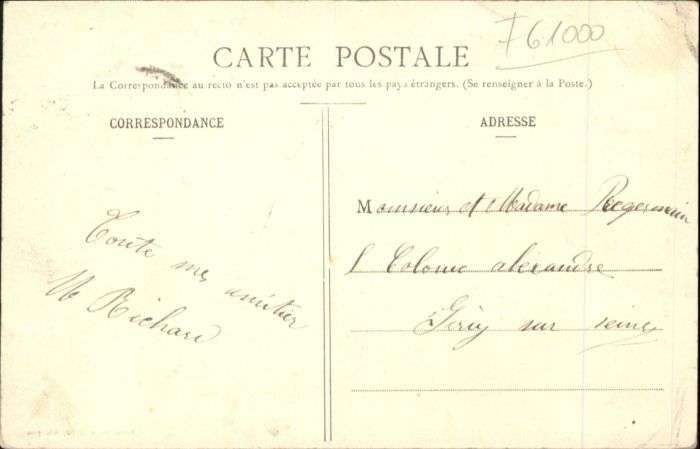 761000
CARTE POSTALE
La Correspondance au recto n'est pas acceptée par tous les pays étrangers. (Se renseigner à la Poste.)
CORRESPONDANCE
ADRESSE
Toute mes amitier
Richard
Monsieur et Madame
Colome alexandre
sur seine